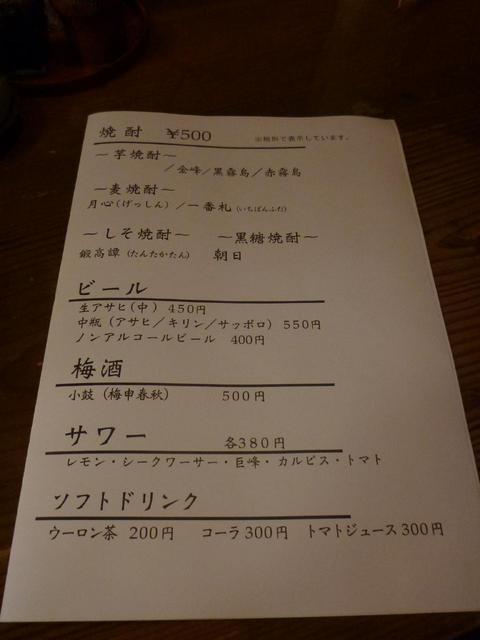 焼酎 ¥500 ※税別で表示しています。
～芋焼酎～
／金峰／黒霧島／赤霧島
～麦焼酎～
月心（げっしん）／一番札（いちばんふだ）
～しそ焼酎～ ～黒糖焼酎～
鍛高譚（たんたかたん） 朝日
ビール
生アサヒ（中） 450円
中瓶（アサヒ／キリン／サッポロ） 550円
ノンアルコールビール 400円
梅酒
小鼓（梅申春秋） 500円
サワー 各380円
レモン・シークワーサー・巨峰・カルピス・トマト
ソフトドリンク
ウーロン茶 200円 コーラ300円 トマトジュース300円